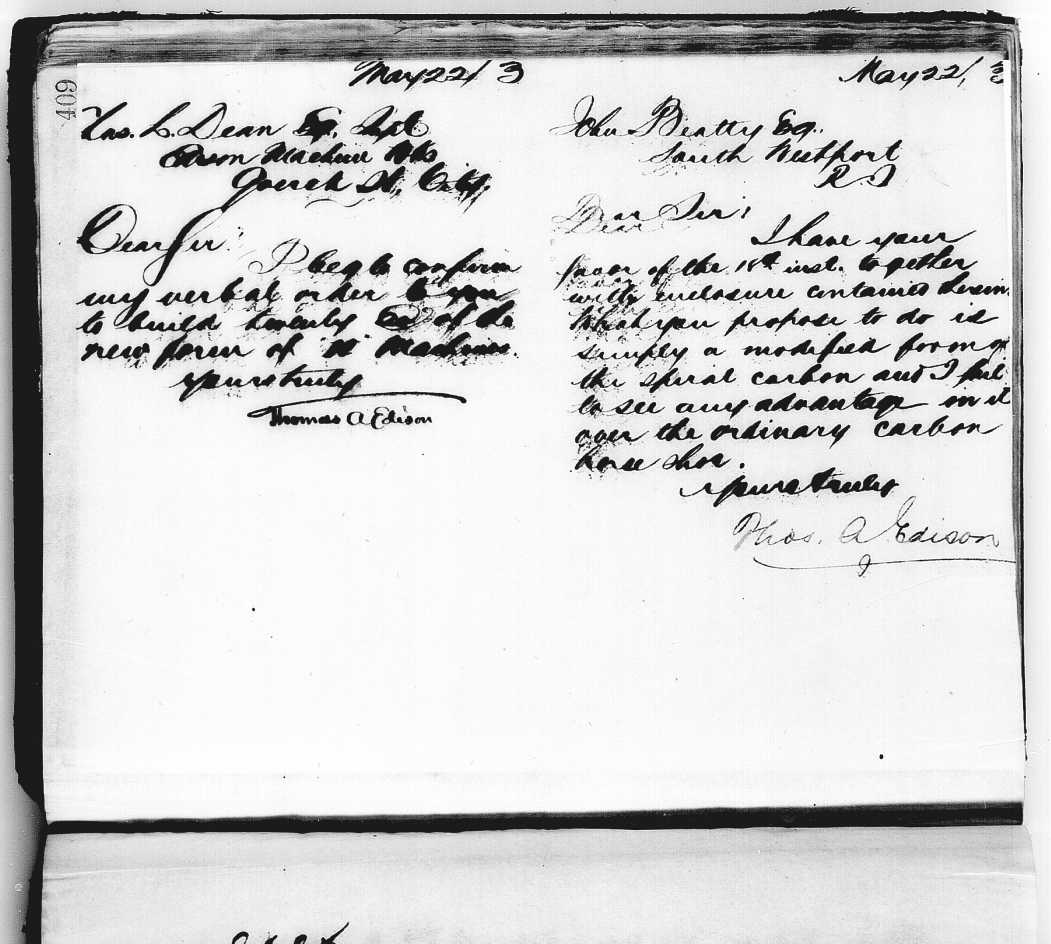 409
May 22/ 3
Chas. L. Dean Esq. Supt.
Edison Machine Wks
Goerck St., City.
Dear Sir:
I beg to confirm
my verbal order to you
to build twenty of the
new form of "H" Machines.
Yours truly
Thomas A Edison
May 22/ 3
John Beatty Esq.
South Westport
R I
Dear Sir:
I have your
favor of the 18th inst. together
with enclosure contained therein.
What you propose to do is
simply a modified form of
the spiral carbon and I fail
to see any advantage in it
over the ordinary carbon
horse shoe.
Yours truly
Thos. A. Edison